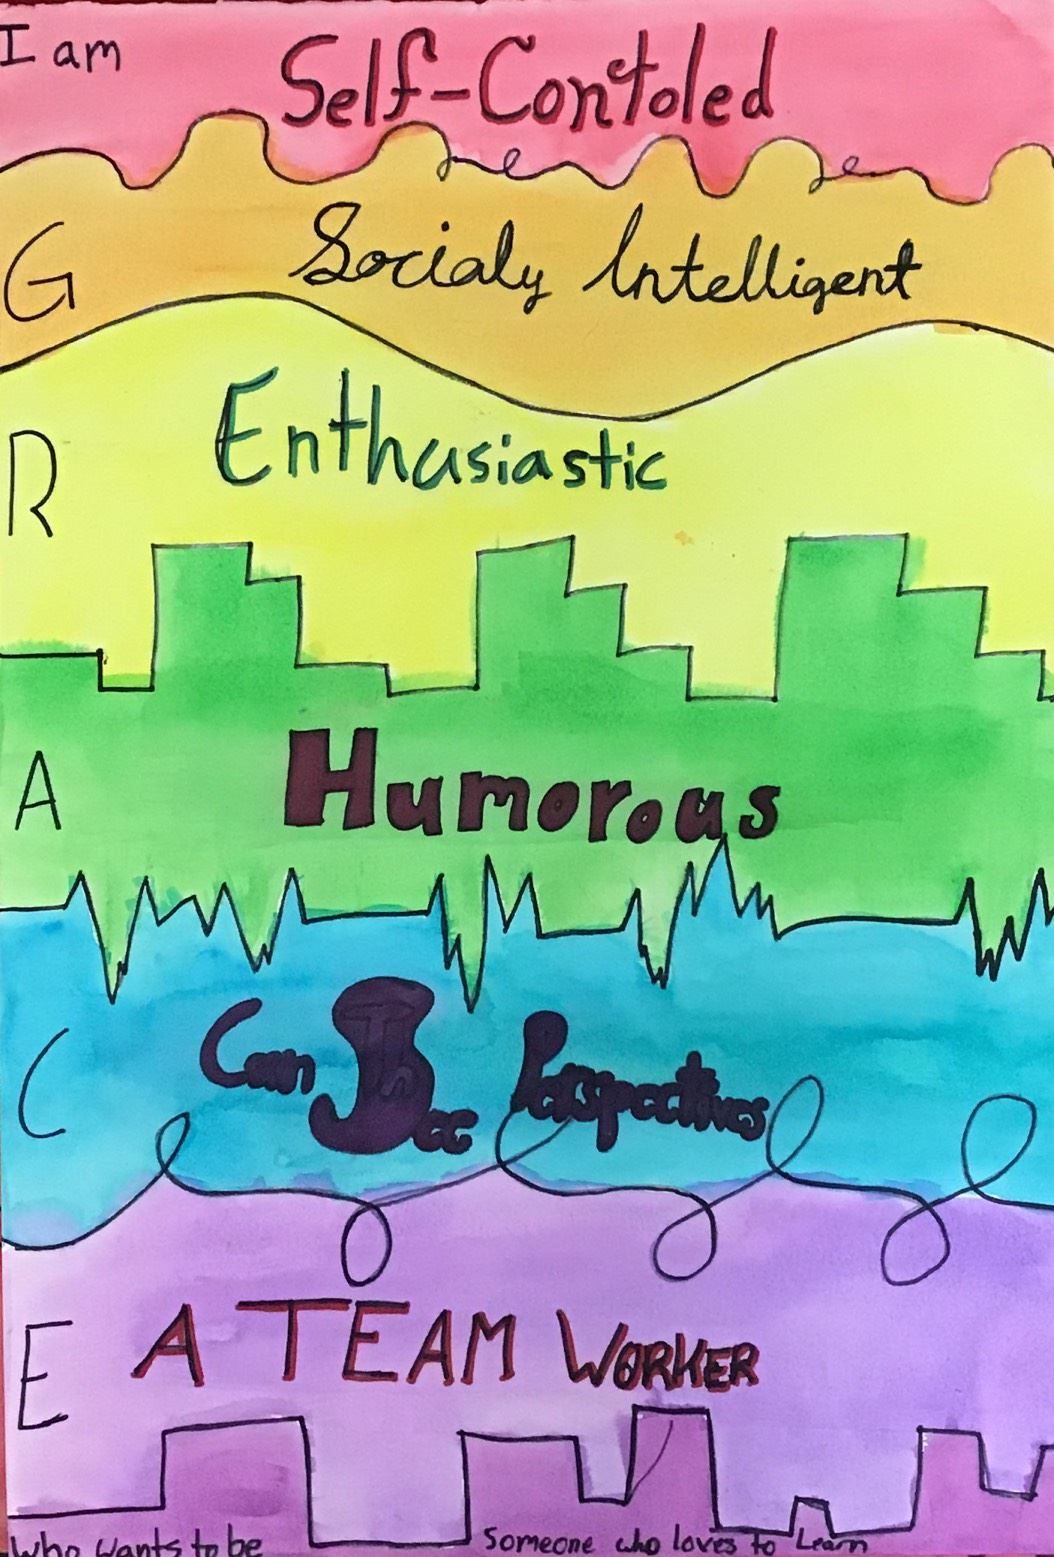 I am
Self-Contoled
G
Socialy Intelligent
R
Enthusiastic
A
Humorous
C
Can See Perspectives
E
A TEAM WORKER
who wants to be
Someone who loves to Learn